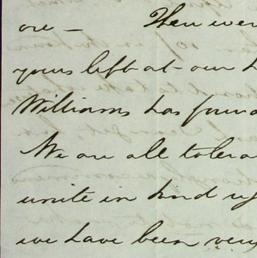 ore — Then wer
yours left at our h
Williams has foun
We are all tolera
unite in kind
we have been very